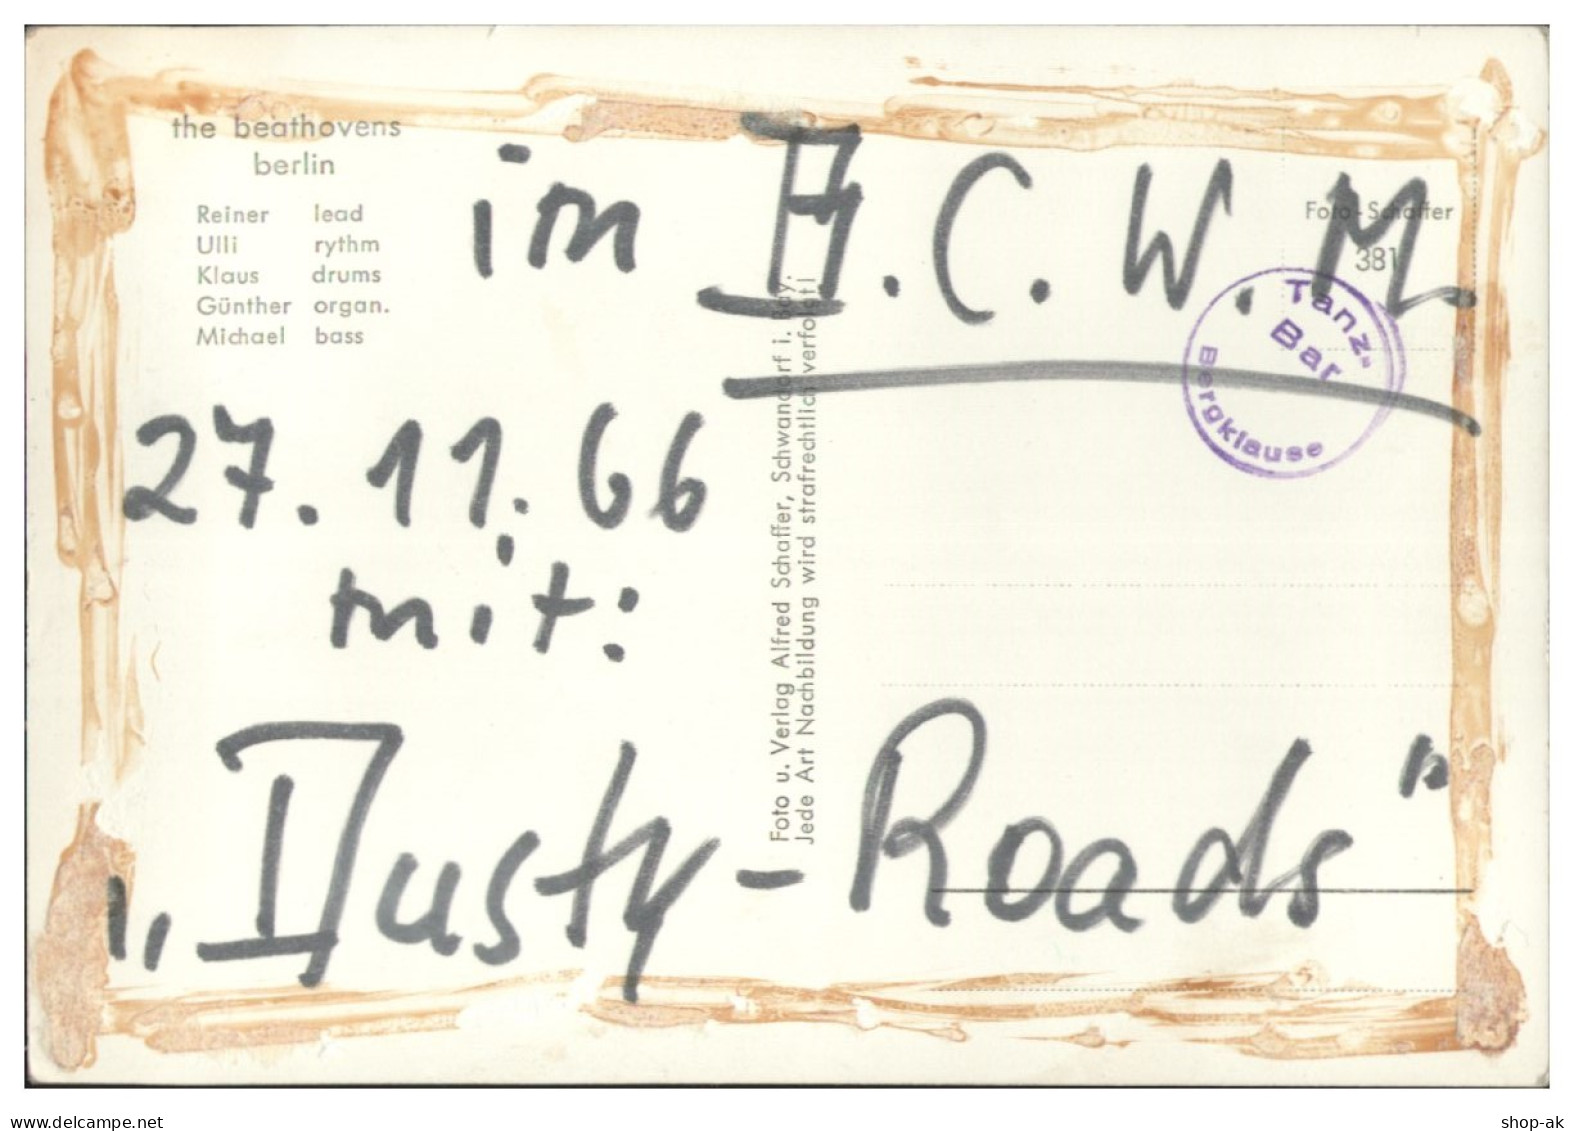 the beathovens
berlin
Reiner lead
Ulli rythm
Klaus drums
Günther organ.
Michael bass
im A.C.W.M
Foto-Schaffer
381
Tanz-
Bar
Bergklause
27.11.66
mit:
„Dusty-Roads"
Foto u. Verlag Alfred Schaffer, Schwandorf i. Bay.
Jede Art Nachbildung wird strafrechtlich verfolgt!
www.delcampe.net
shop-ak